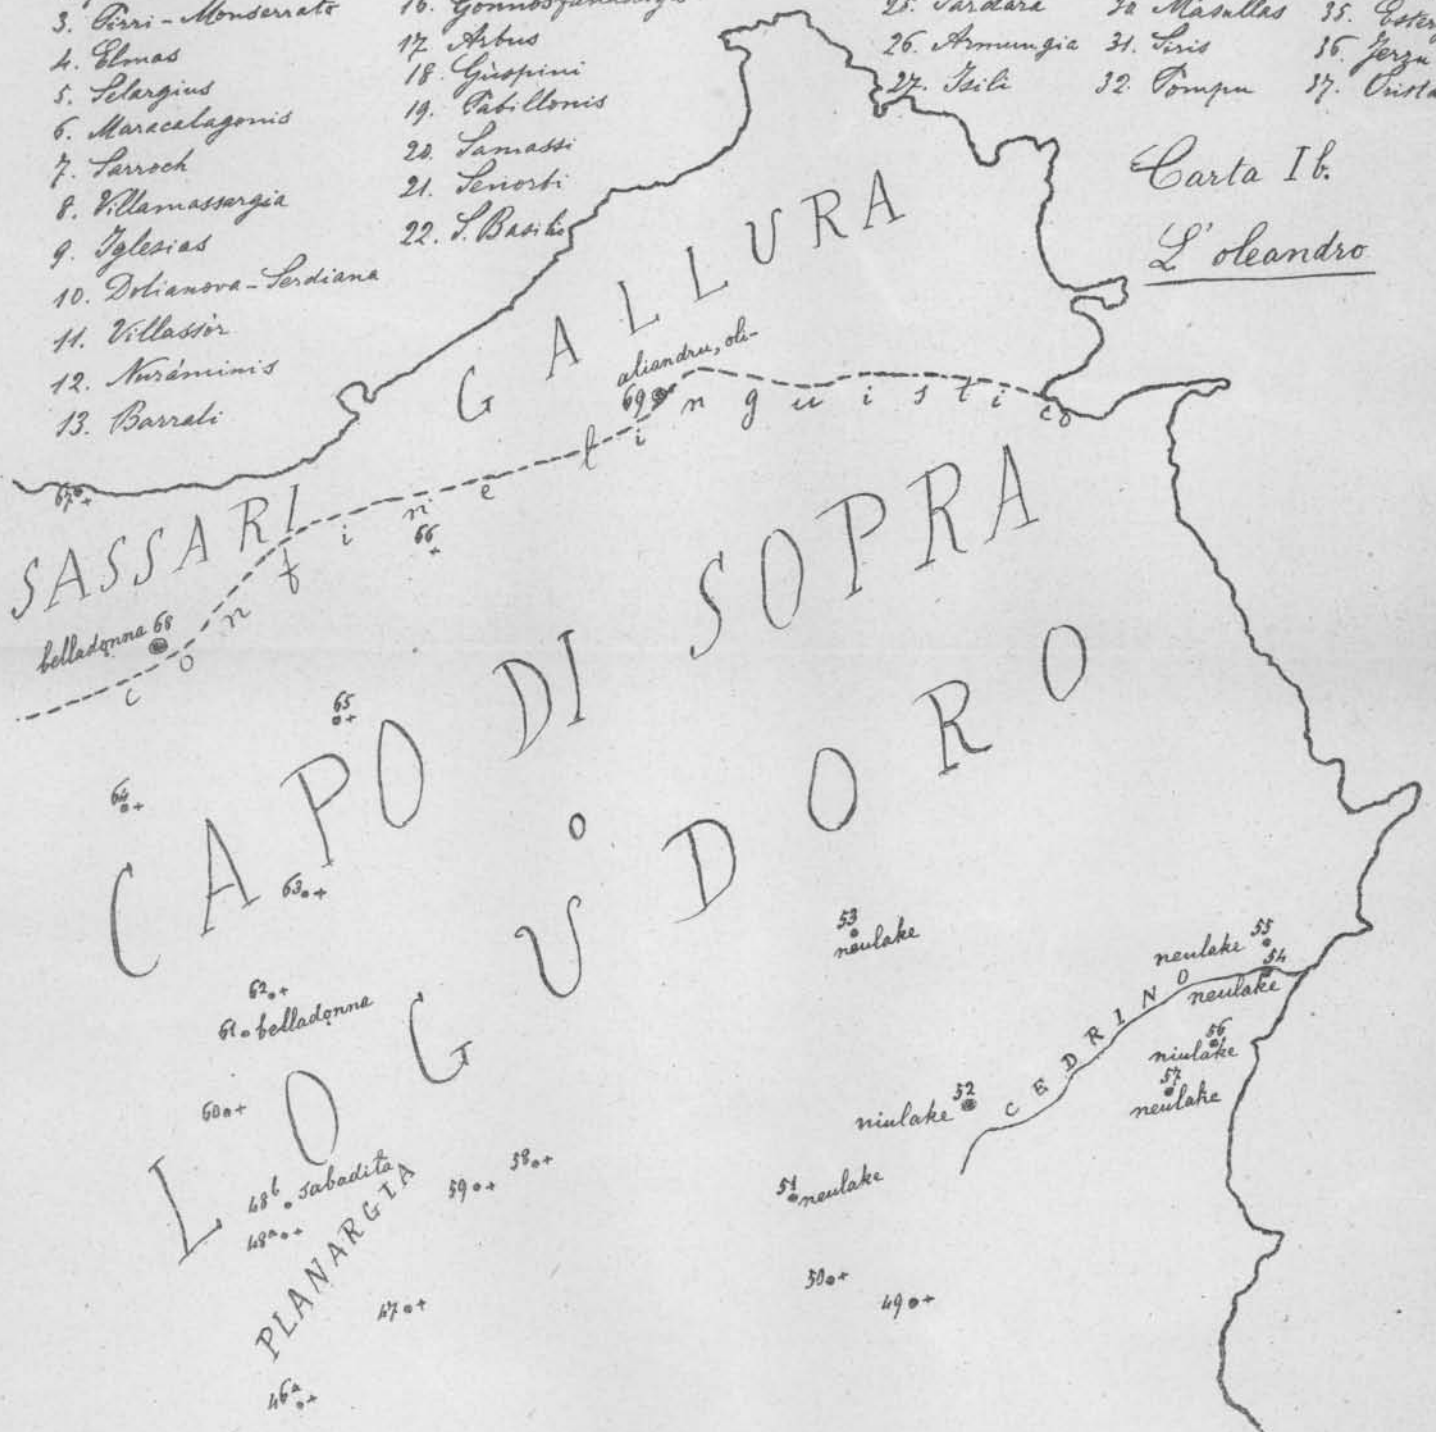 3. Pirri-Monserrato
4. Elmas
5. Selargius
6. Maracalagonis
7. Sarroch
8. Villamassargia
9. Iglesias
10. Dolianova-Serdiana
11. Villassòr
12. Nuráminis
13. Barrali
17. Arbus
18. Gùspini
19. Pabillonis
20. Samassi
21. Senorbi
22. S. Basilio
25. Sardara
26. Armungia
27. Isili
30. Masullas
31. Siris
32. Pompu
35.
36. Jerzu
37.
Carta I b.
L'oleandro
GALLURA
aliandru, oli-
69
confine linguistico
67 +
SASSARI
66 +
belladonna 68
CAPO DI SOPRA
65 +
64 +
63 +
LOGUDORO
62 +
61 belladonna
60 +
53
neulake
neulake 55
54
neulake
CEDRINO
56
niulake
57
neulake
niulake 52
51 neulake
58 +
59 +
48b sabadita
48a +
PLANARGIA
47 +
50 +
49 +
46a +